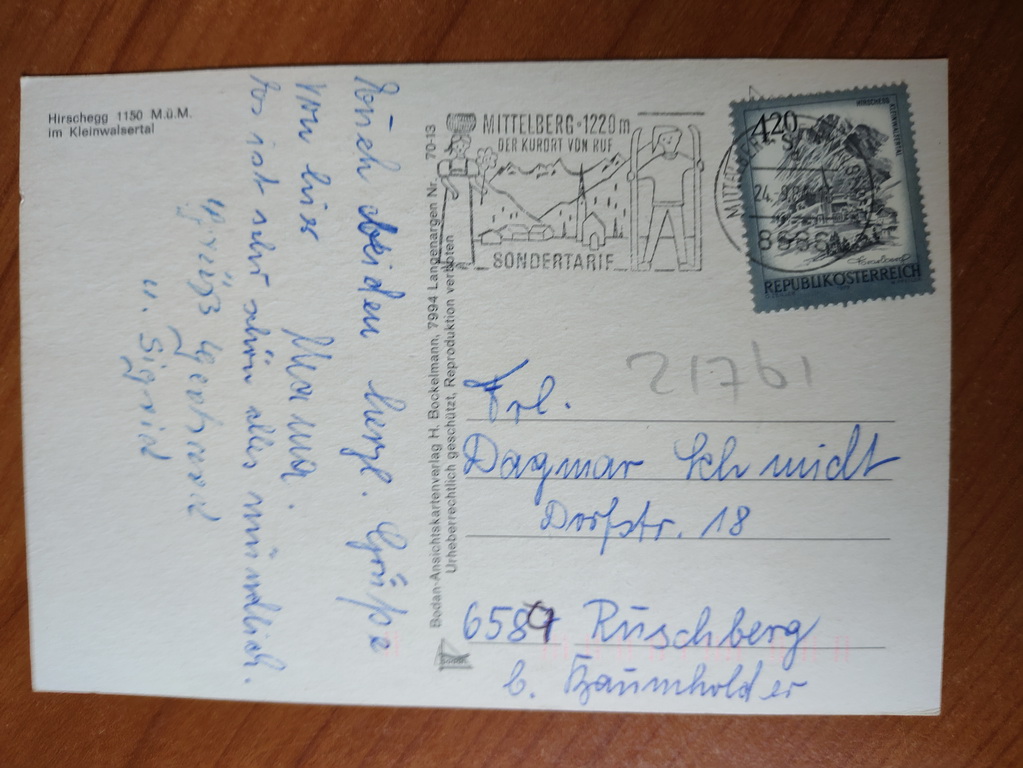 Hirschegg 1150 M.ü.M.
im Kleinwalsertal
Euch beiden herzl. Grüße
von hier Mama.
Es ist sehr schön alles mündlich.
Grüße Gertrud
u. Sigrid
Bodan-Ansichtskartenverlag H. Bockelmann, 7994 Langenargen Nr. 70-13
Urheberrechtlich geschützt, Reproduktion verboten
MITTELBERG · 1220 m
DER KURORT VON RUF
SONDERTARIF
4,20
HIRSCHEGG
REPUBLIK ÖSTERREICH
21761
Frl.
Dagmar Schmidt
Dorfstr. 18
6589 Ruschberg
b. Baumholder